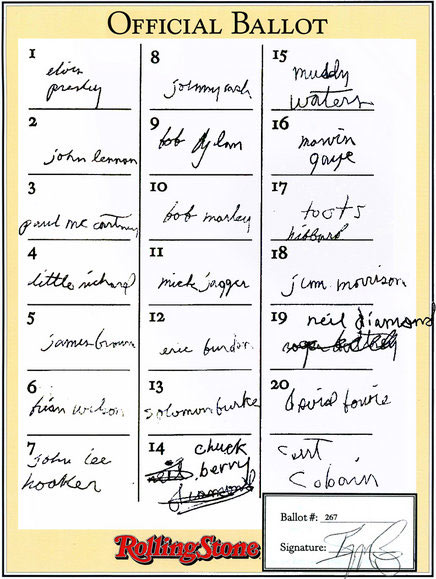 OFFICIAL BALLOT
1
elvis
presley
2
john lennon
3
paul mc cartney
4
little richard
5
james brown
6
brian wilson
7
john lee
hooker
8
johnny cash
9
bob dylan
10
bob marley
11
mick jagger
12
eric burdon
13
solomon burke
14
chuck
berry
15
muddy
waters
16
marvin
gaye
17
toots
hibbard
18
jim morrison
19
neil diamond
20
david bowie
curt
cobain
RollingStone
Ballot #: 267
Signature: